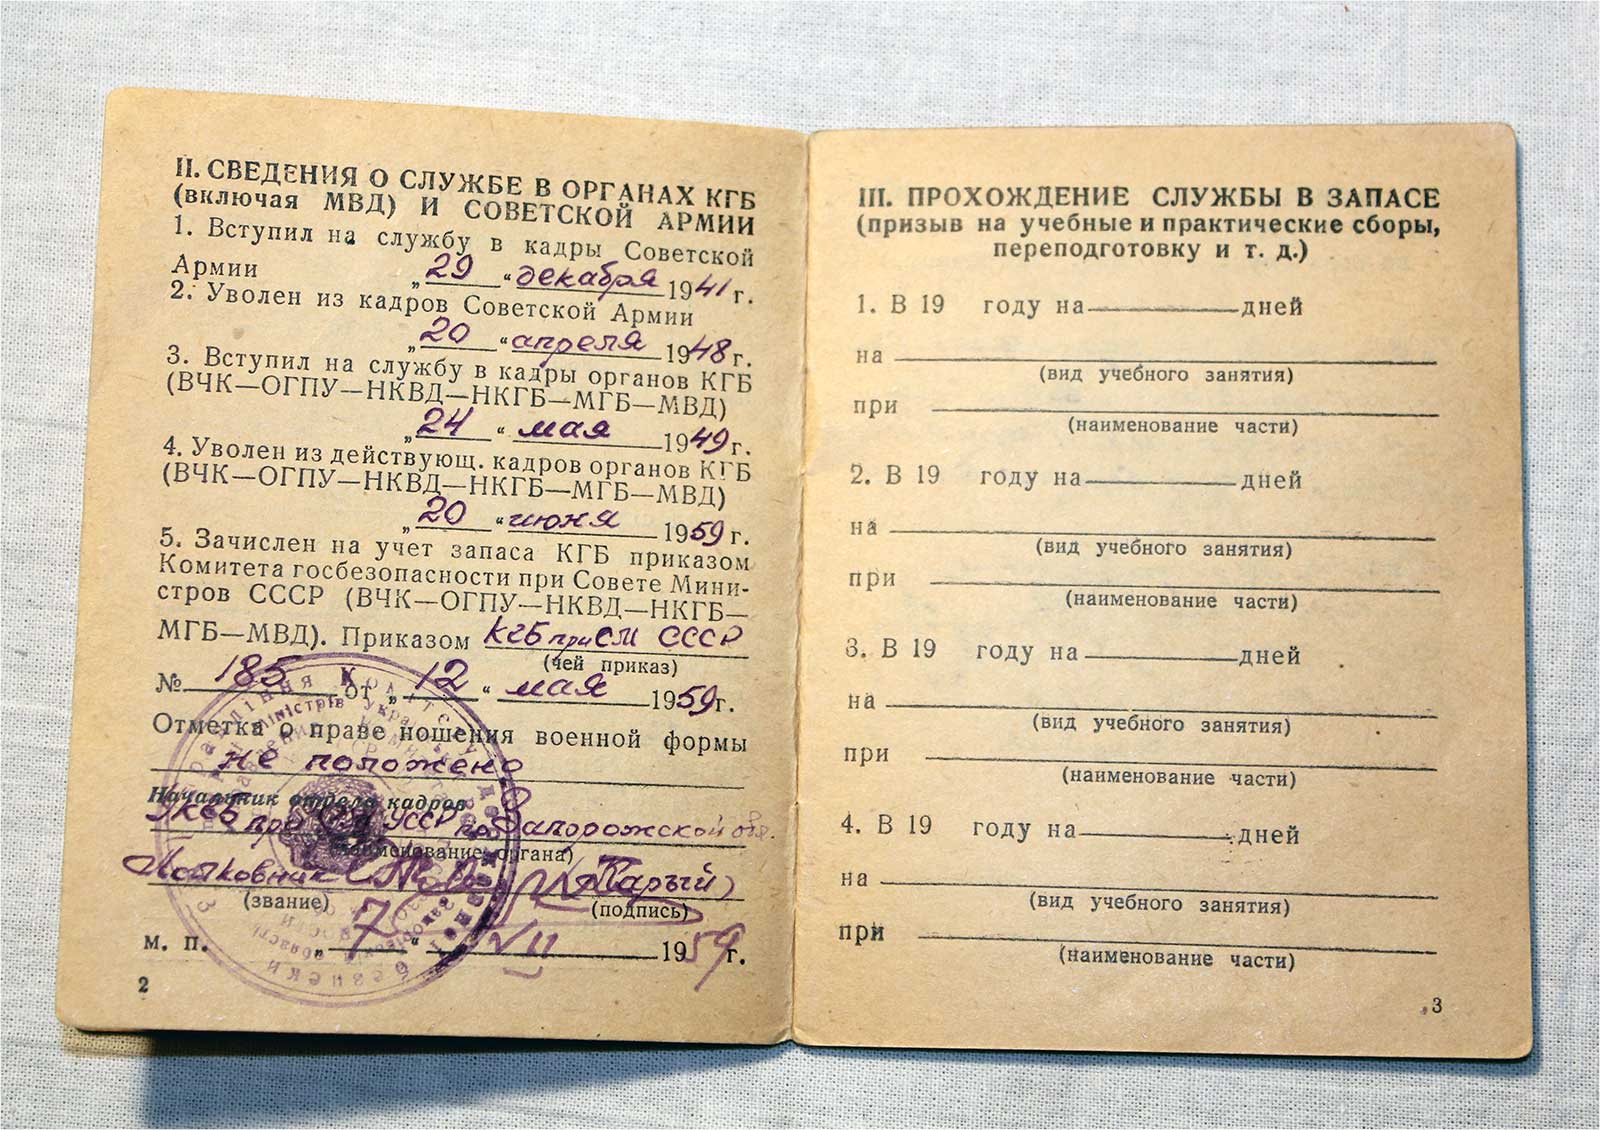 II. СВЕДЕНИЯ О СЛУЖБЕ В ОРГАНАХ КГБ
(включая МВД) И СОВЕТСКОЙ АРМИИ
1. Вступил на службу в кадры Советской
Армии „29“ декабря 1941 г.
2. Уволен из кадров Советской Армии
„20“ апреля 1948 г.
3. Вступил на службу в кадры органов КГБ
(ВЧК—ОГПУ—НКВД—НКГБ—МГБ—МВД)
„24“ мая 1949 г.
4. Уволен из действующ. кадров органов КГБ
(ВЧК—ОГПУ—НКВД—НКГБ—МГБ—МВД)
„20“ июня 1959 г.
5. Зачислен на учет запаса КГБ приказом
Комитета госбезопасности при Совете Мини-
стров СССР (ВЧК—ОГПУ—НКВД—НКГБ—
МГБ—МВД). Приказом КГБ при СМ СССР
(чей приказ)
№ 185 от „12“ мая 1959 г.
Отметка о праве ношения военной формы
не положено
Начальник отдела кадров
УКГБ при СМ УССР по Запорожской обл.
(наименование органа)
Полковник (Парый)
(звание) (подпись)
м. п. „7“ VII 1959 г.
2
III. ПРОХОЖДЕНИЕ СЛУЖБЫ В ЗАПАСЕ
(призыв на учебные и практические сборы,
переподготовку и т. д.)
1. В 19 году на дней
на
(вид учебного занятия)
при
(наименование части)
2. В 19 году на дней
на
(вид учебного занятия)
при
(наименование части)
3. В 19 году на дней
на
(вид учебного занятия)
при
(наименование части)
4. В 19 году на дней
на
(вид учебного занятия)
при
(наименование части)
3